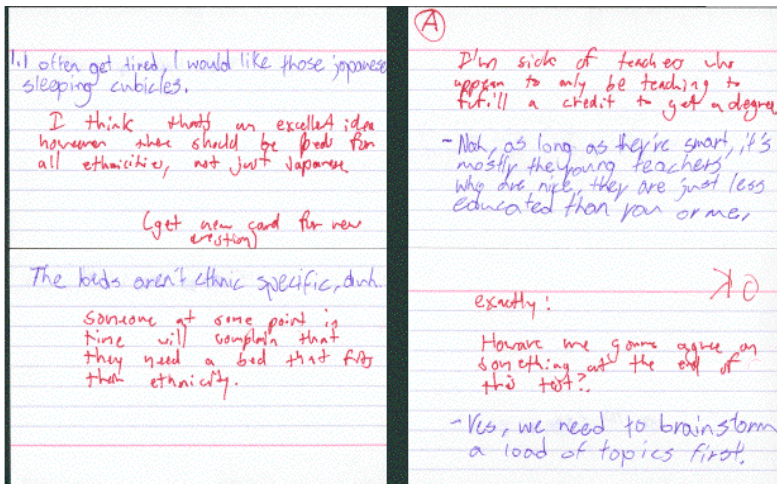 1.) I often get tired, I would like those japanese
sleeping cubicles.
I think that's an excellent idea
however there should be beds for
all ethnicities, not just Japanese
(get new card for new
question)
The beds aren't ethnic specific, duh.
Someone at some point in
time will complain that
they need a bed that fits
their ethnicity.
A
I'm sick of teachers who
appear to only be teaching to
fulfill a credit to get a degree.
-Nah, as long as they're smart, it's
mostly the young teachers
who are nice, they are just less
educated than you or me,
OK
exactly!
How are we gonna agree on
something at the end of
this test?
-Yes, we need to brainstorm
a load of topics first.